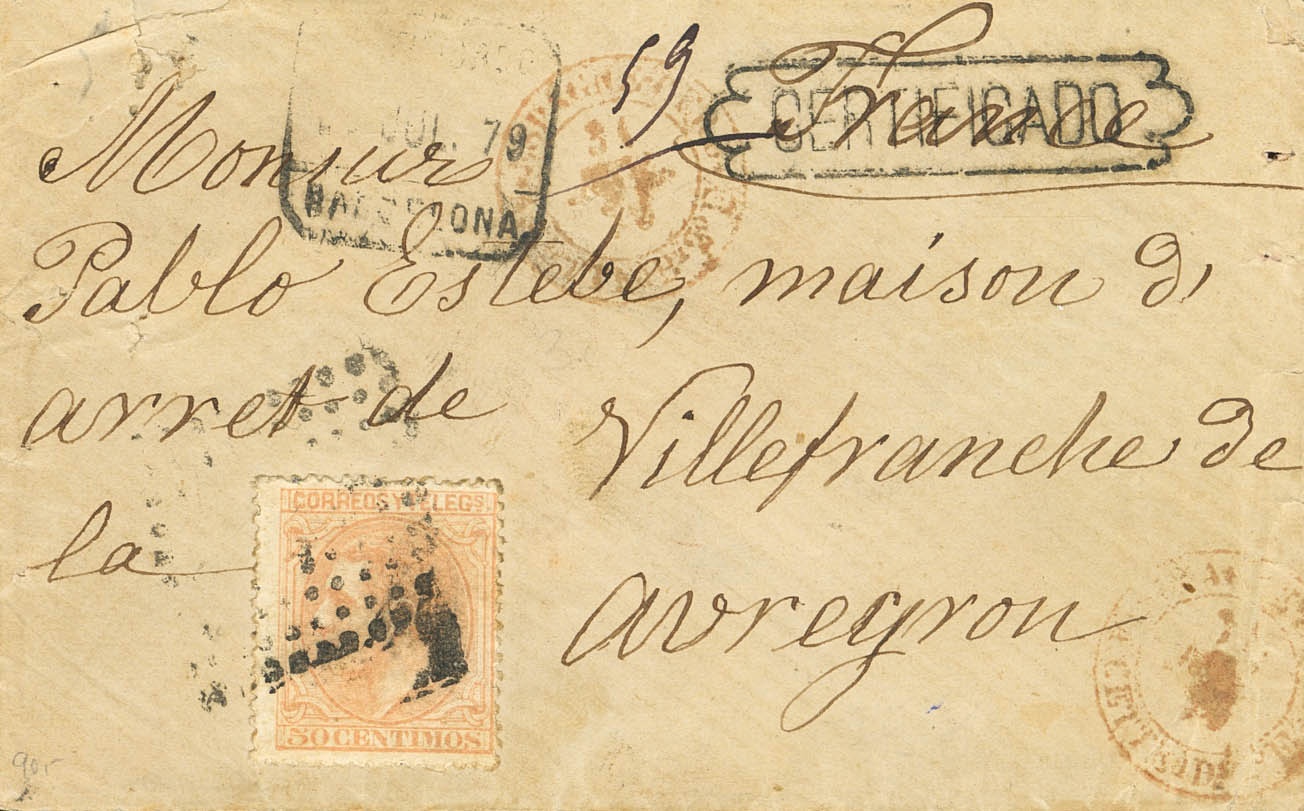 59 France
CERTIFICADO
JUL. 79
BARCELONA
Monsiur
Pablo Estebe, maison d'
arret de Villefranche de
la avreyron
CORREOS Y TELEGS.
50 CENTIMOS
90